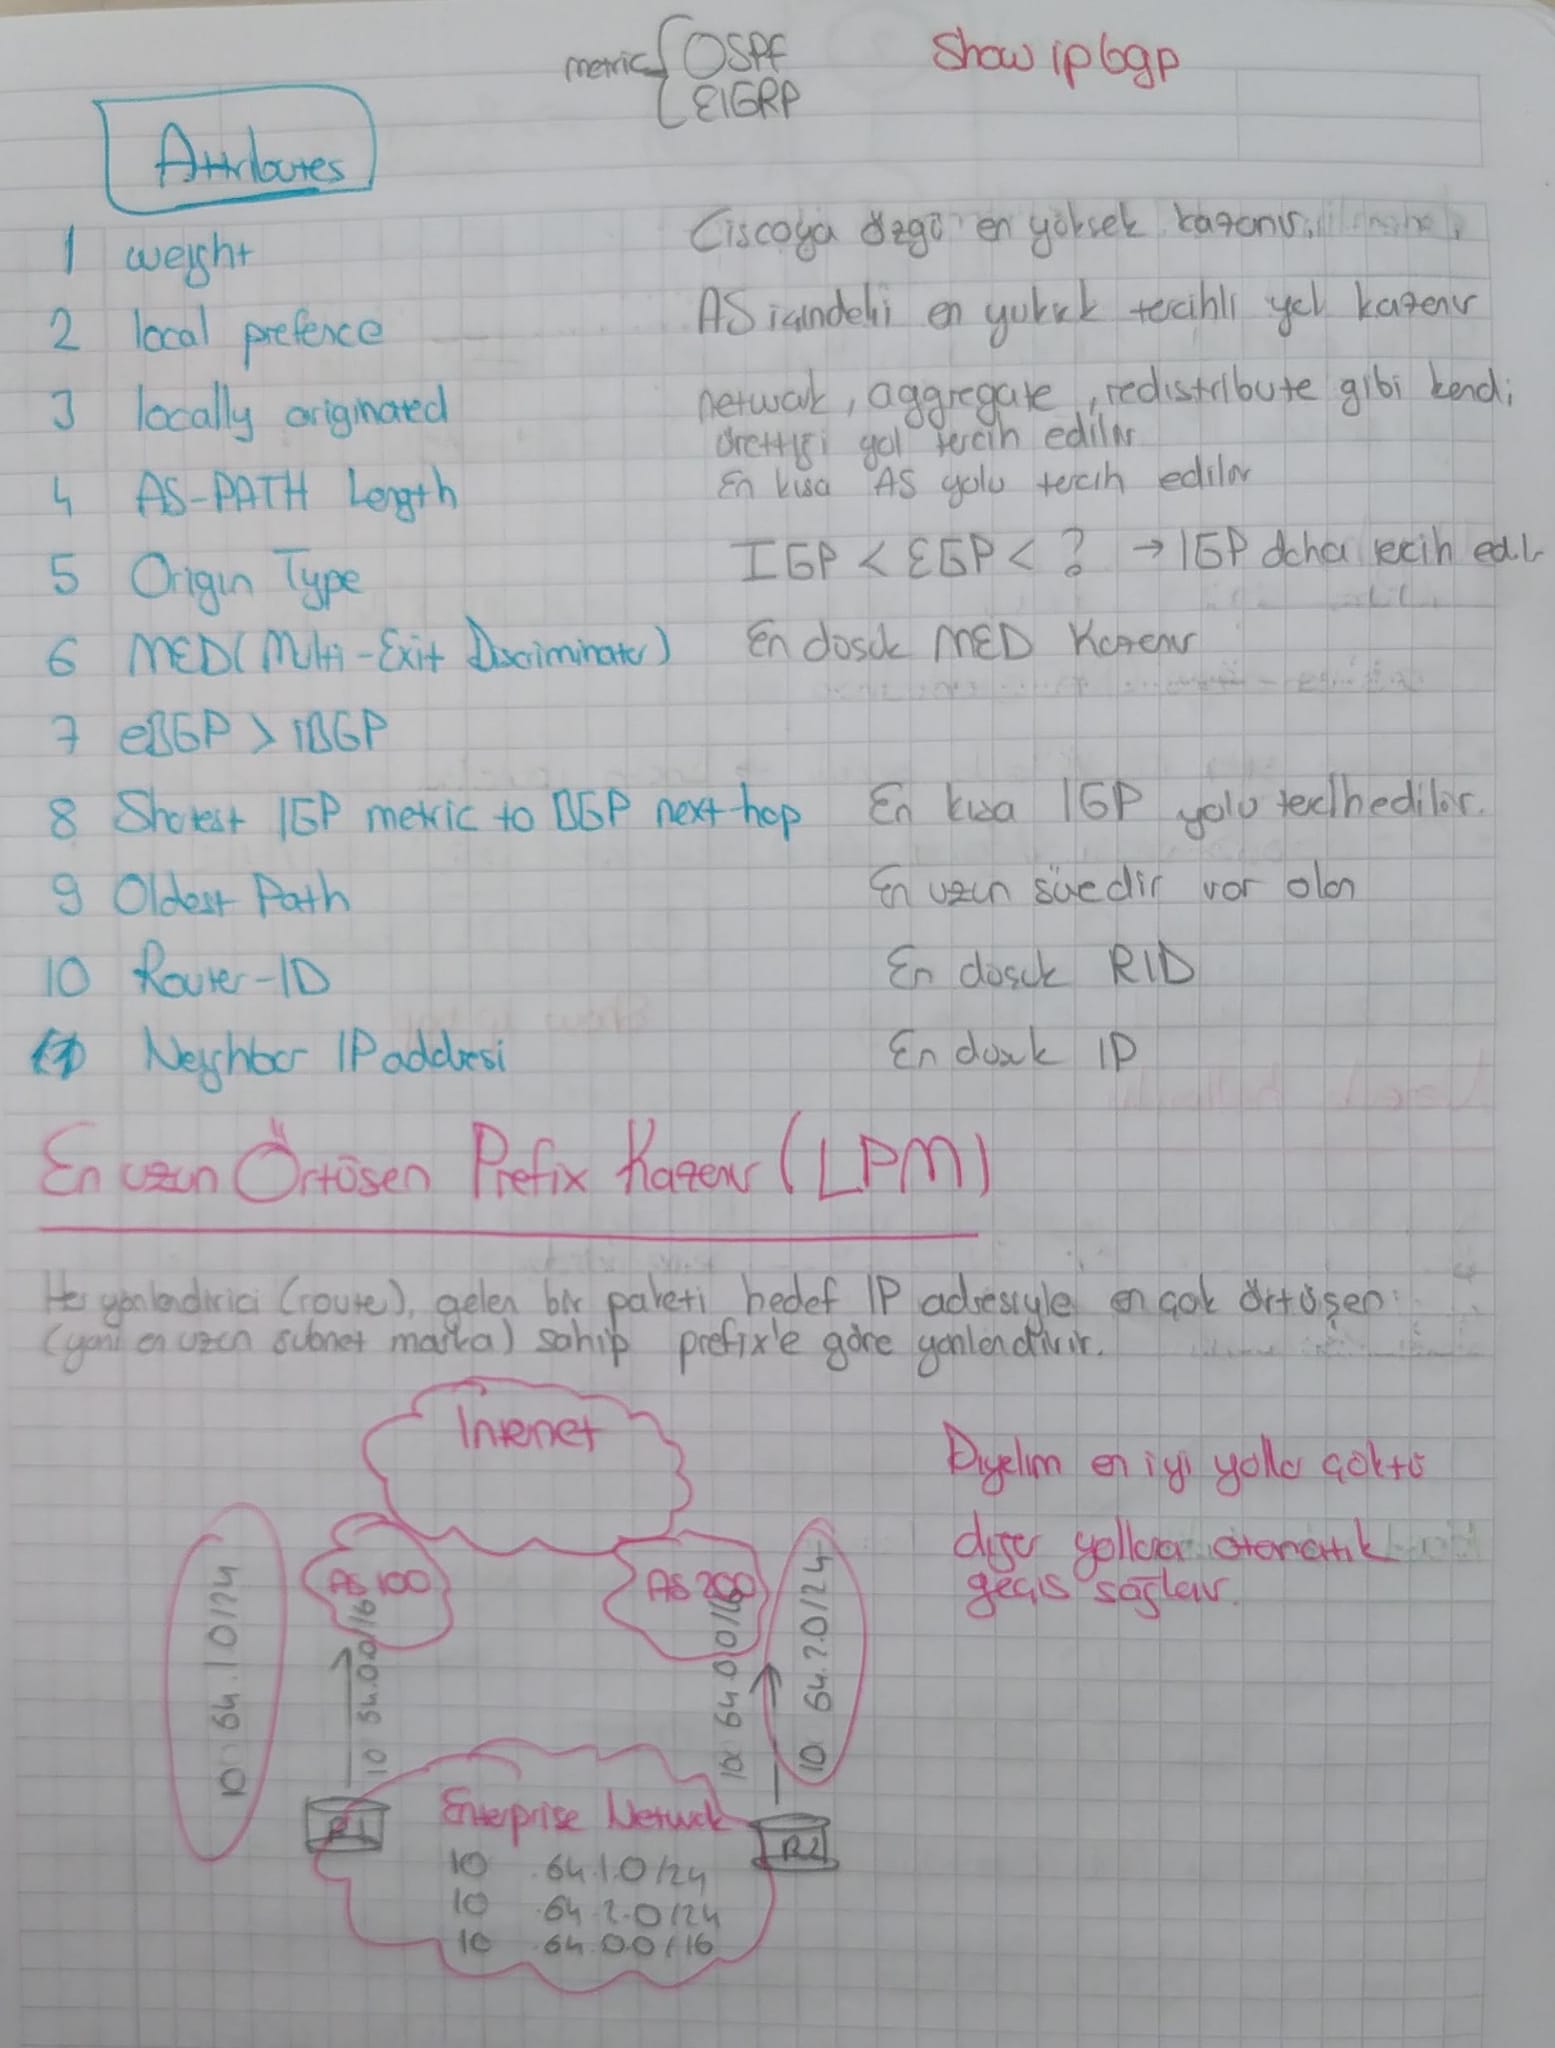 metric { OSPF
EIGRP
Show ip bgp
Attributes
1 weight Ciscoya özgü en yüksek kazanır.
2 local prefence AS içindeki en yüksek tercihli yol kazanır
3 locally originated network, aggregate, redistribute gibi kendi
ürettiği yol tercih edilir
4 AS-PATH Length En kısa AS yolu tercih edilir
5 Origin Type IGP < EGP < ? → IGP daha tercih edilir
6 MED (Multi-Exit Discriminator) En düşük MED Kazanır
7 eBGP > iBGP
8 Shortest IGP metric to BGP next hop En kısa IGP yolu tercih edilir.
9 Oldest Path En uzun süredir var olan
10 Router-ID En düşük RID
11 Neighbor IP addresi En düşük IP
En uzun Örtüşen Prefix Kazanır (LPM)
Her yönlendirici (route), gelen bir paketi hedef IP adresiyle en çok örtüşen
(yani en uzun subnet maska) sahip prefix'e göre yönlendirir.
Internet
Diyelim en iyi yollar çöktü
diğer yollara otomatik
geçiş sağlanır.
AS 100
AS 200
10.64.1.0/24
10.64.0.0/16
10.64.0.0/16
10.64.2.0/24
R1
R2
Enterprise Network
10 .64.1.0/24
10 .64.2.0/24
10 .64.0.0/16